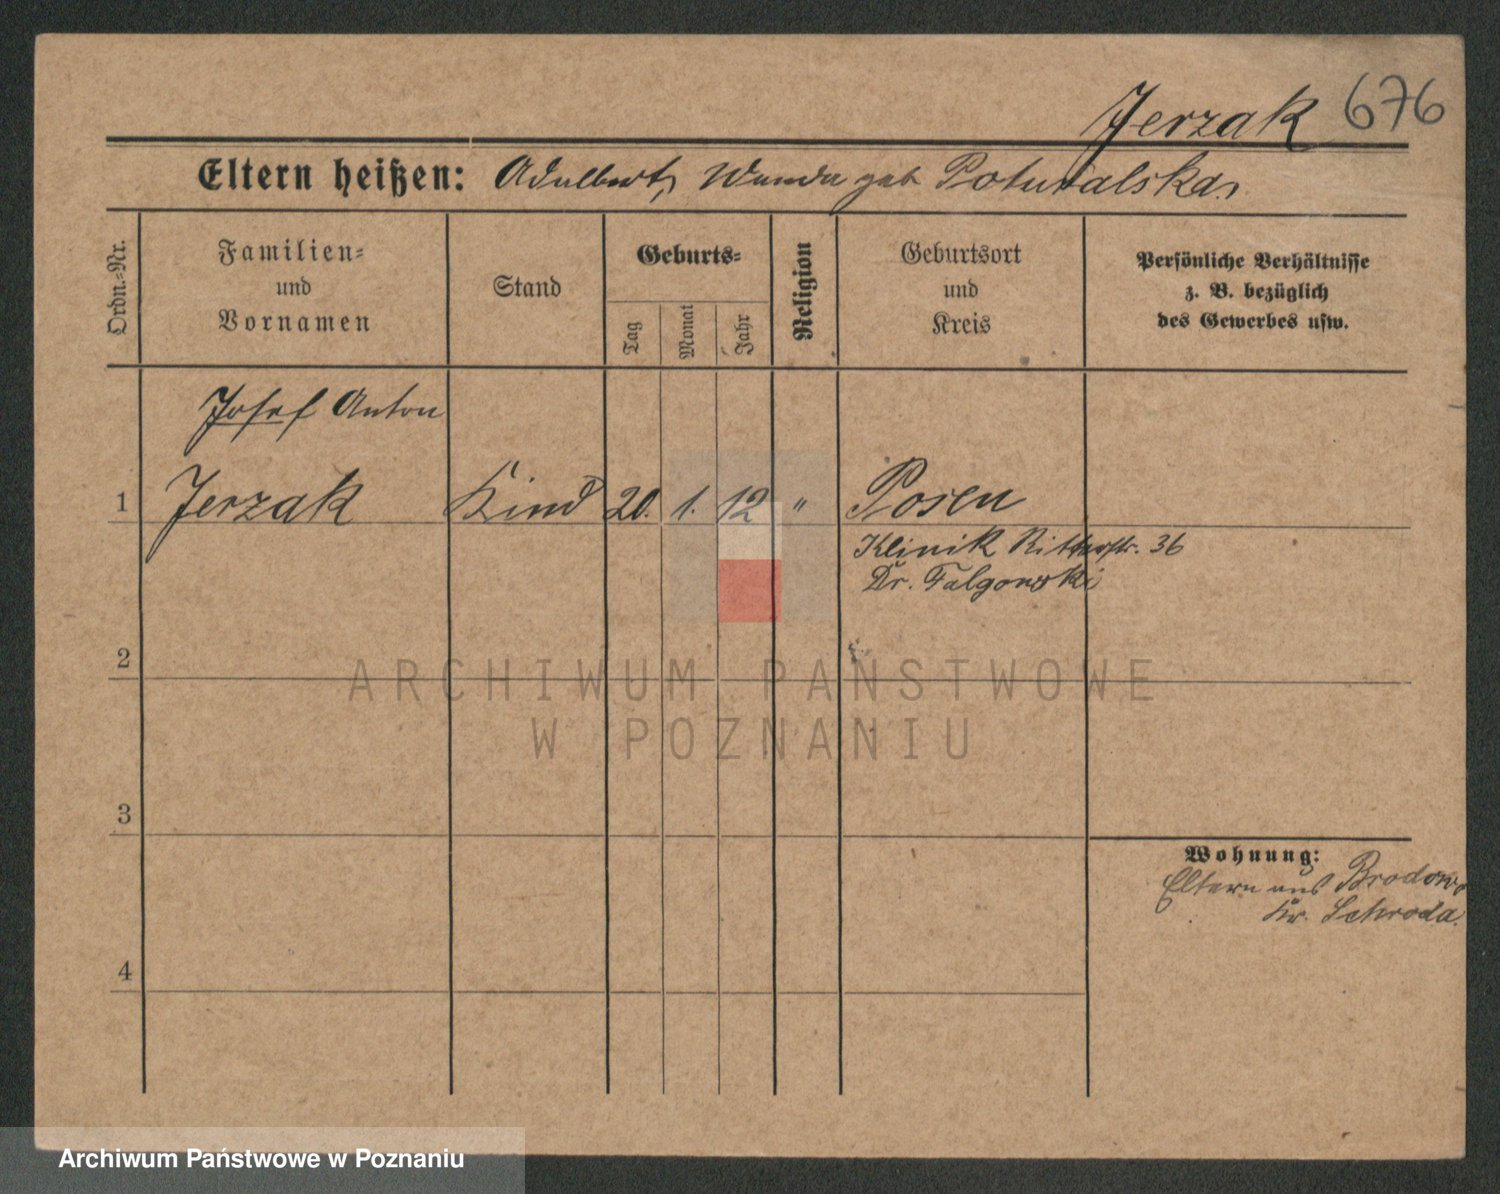 Jerzak 676
Eltern heißen: Adalbert, Wanda geb Poturalska,
Ordn.-Nr.
Familien-
und
Vornamen
Stand
Geburts-
Tag
Monat
Jahr
Religion
Geburtsort
und
Kreis
Persönliche Verhältnisse
z. B. bezüglich
des Gewerbes usw.
Josef Anton
1 Jerzak Kind 20. 1. 12 " Posen
Klinik Ritterstr. 36
Dr. Falgowski
2
ARCHIWUM PAŃSTWOWE
W POZNANIU
3
Wohnung:
Eltern aus Brodowo
Kr. Schroda.
4
Archiwum Państwowe w Poznaniu